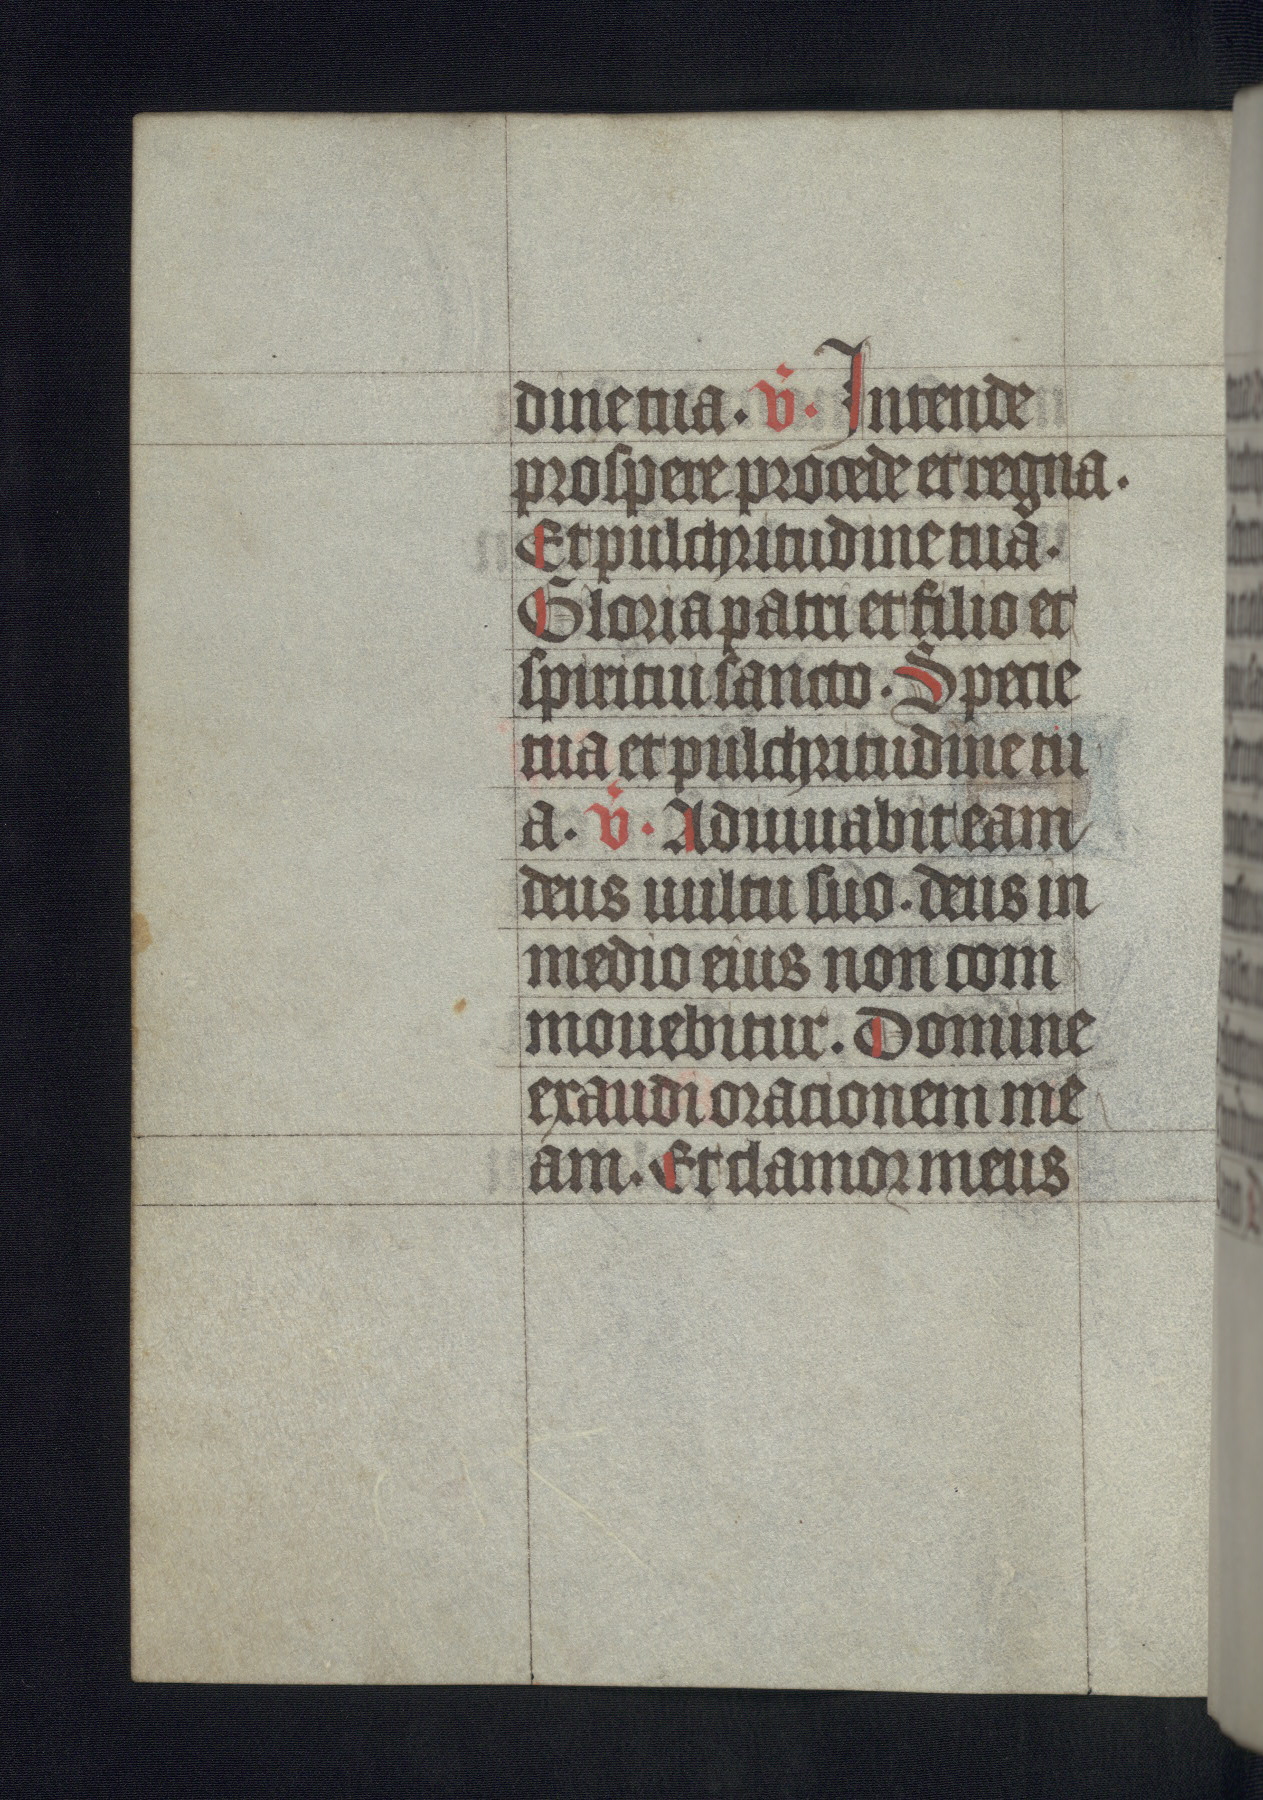 dine tua. v̄. Intende
prospere procede et regna.
Et pulchritudine tua.
Gloria patri et filio et
spiritui sancto. Specie
tua et pulchritudine tu
a. v̄. Adiuuabit eam
deus uultu suo. deus in
medio eius non com
mouebitur. Domine
exaudi orationem me
am. Et clamor meus